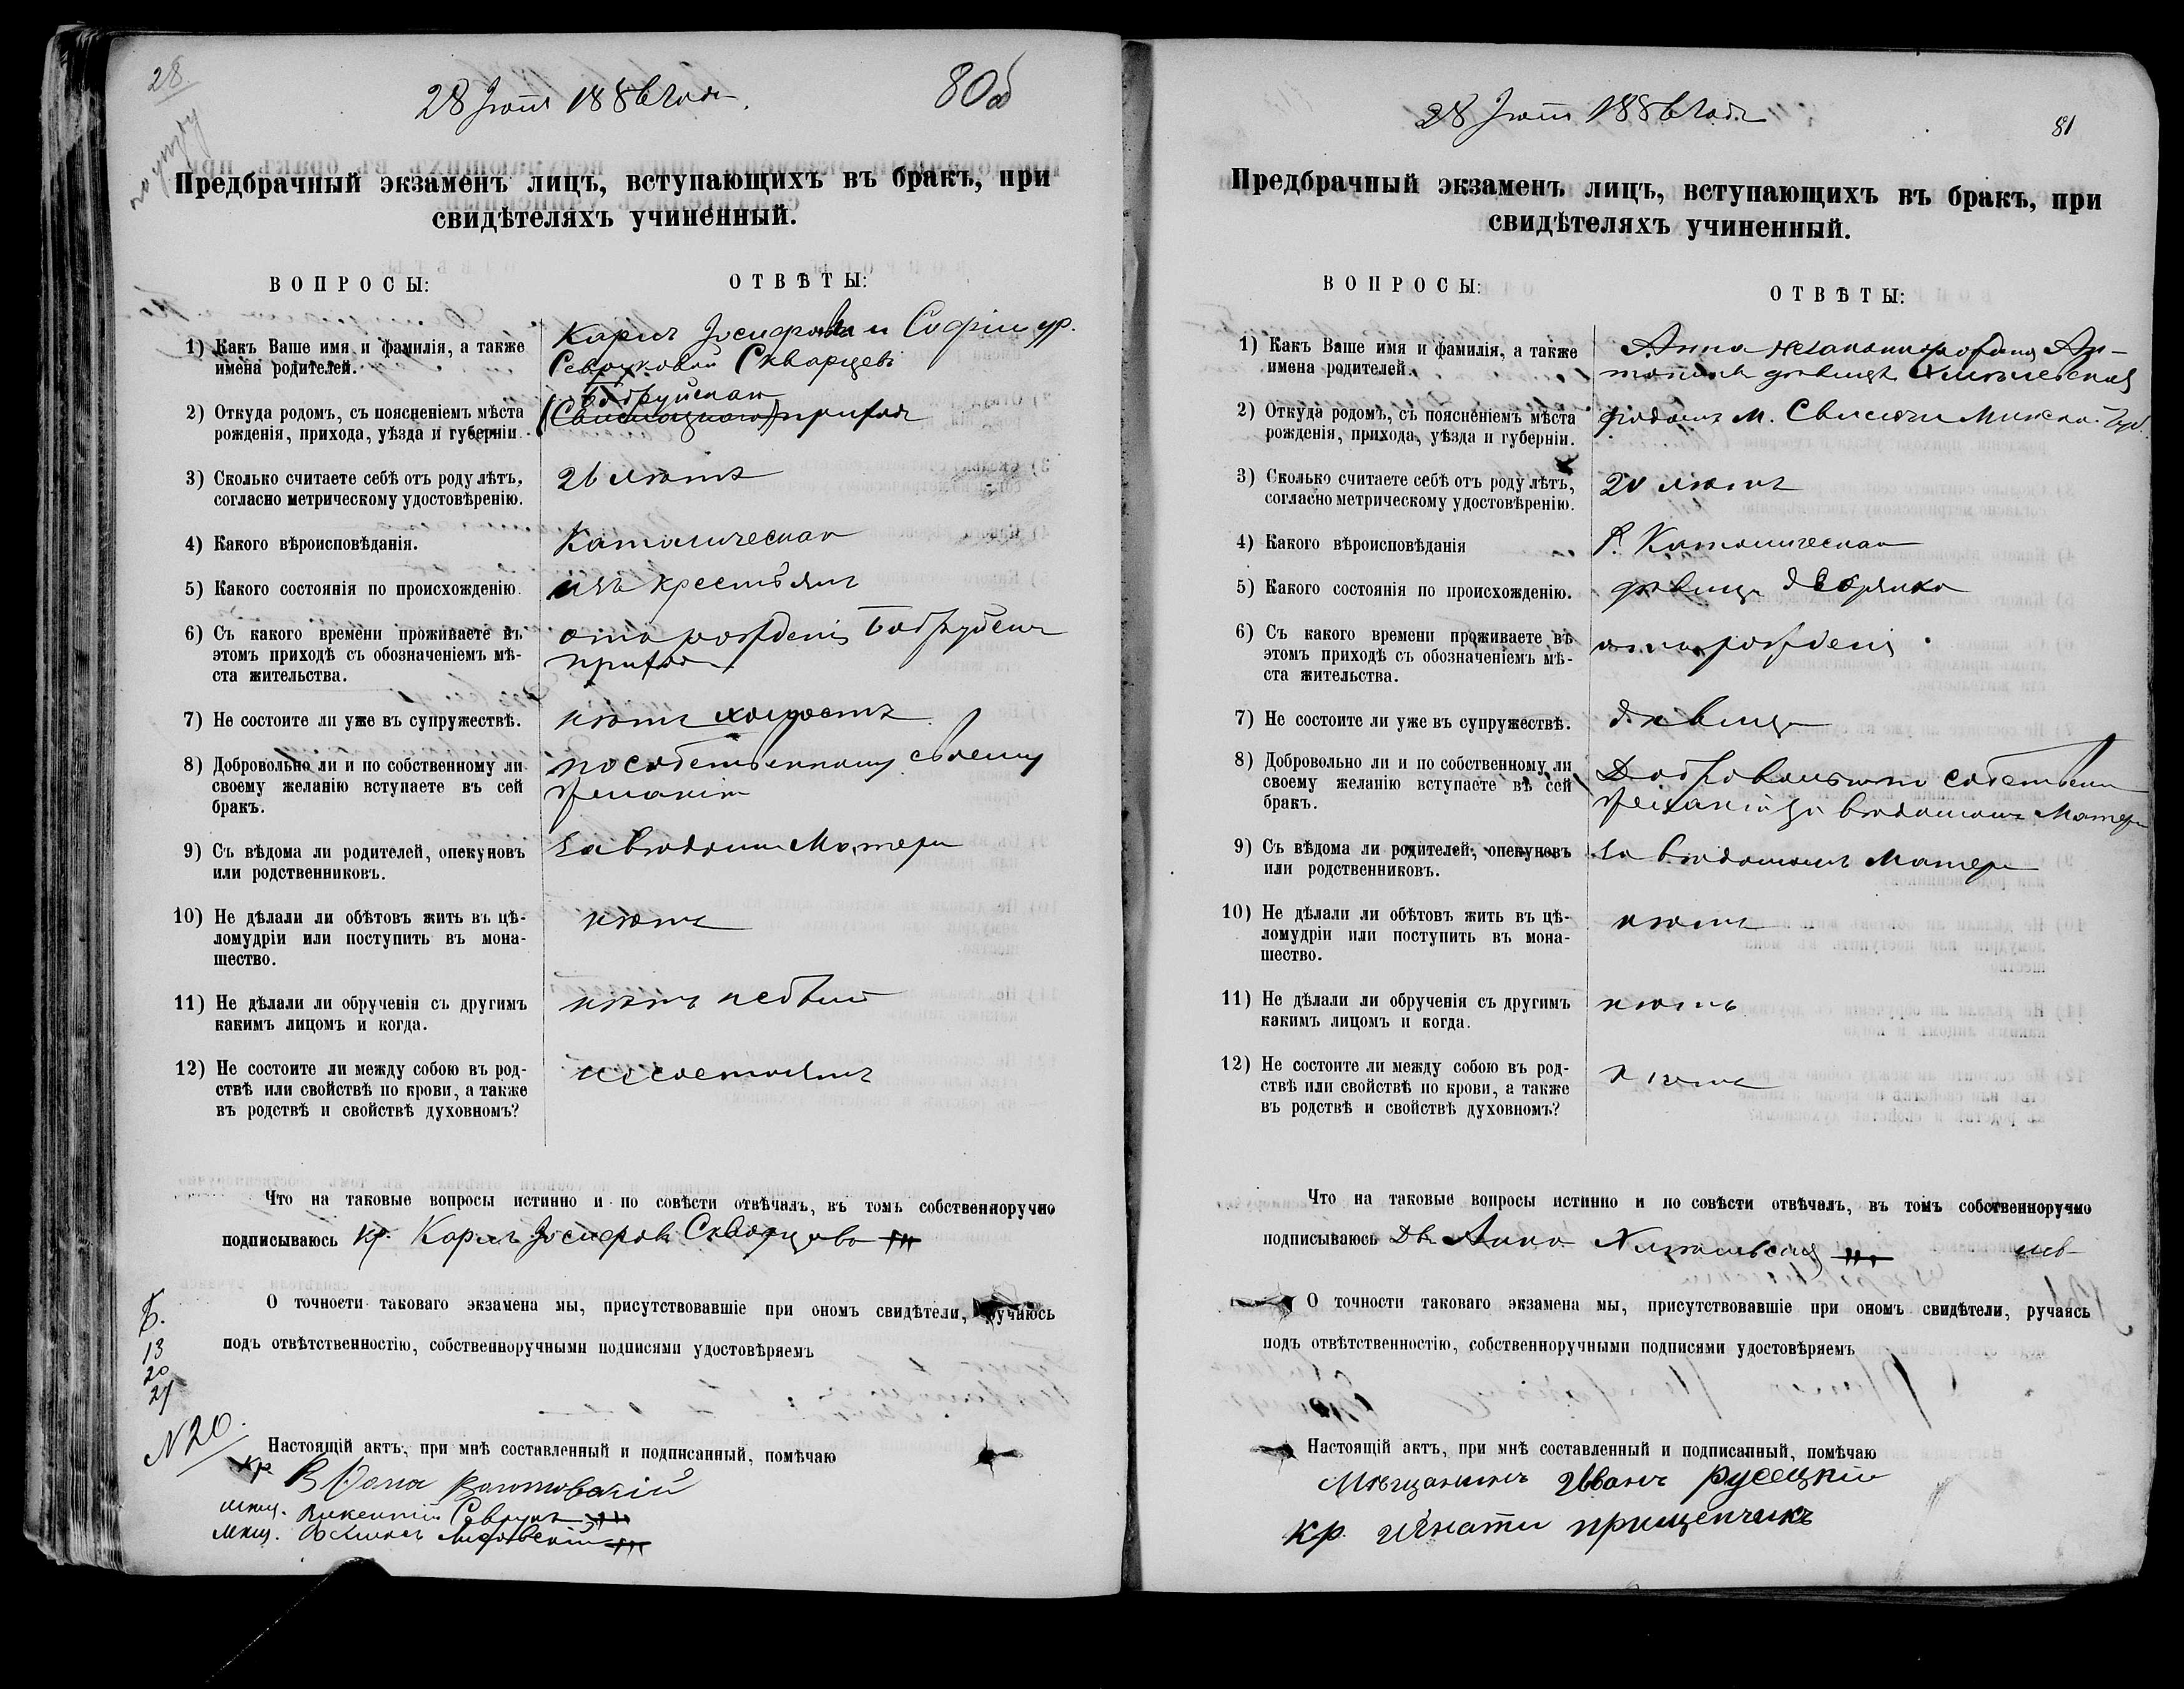 28
28 Іюля 1886 года.
80об
Предбрачный экзаменъ лицъ, вступающихъ въ бракъ, при
свидѣтеляхъ учиненный.
ВОПРОСЫ:
ОТВѢТЫ:
1) Какъ Ваше имя и фамилія, а также
имена родителей.
Карлъ Іосифова и Софіи ур.
Скварцевъ
2) Откуда родомъ, съ поясненіемъ мѣста
рожденія, прихода, уѣзда и губерніи
Бобруйскаго
(Свислоцкаго) прихода
3) Сколько считаете себѣ отъ роду лѣтъ,
согласно метрическому удостовѣренію.
26 лѣтъ
4) Какого вѣроисповѣданія.
Католическаго
5) Какого состоянія по происхожденію.
изъ крестьянъ
6) Съ какого времени проживаете въ
этомъ приходѣ съ обозначеніемъ мѣ-
ста жительства.
отъ рожденія Бобруйскаго
прихода
7) Не состоите ли уже въ супружествѣ.
нѣтъ холостъ
8) Добровольно ли и по собственному ли
своему желанію вступаете въ сей
бракъ.
по собственному своему
желанію
9) Съ вѣдома ли родителей, опекуновъ
или родственниковъ.
За вѣдомомъ Матери
10) Не дѣлали ли обѣтовъ жить въ цѣ-
ломудріи или поступить въ мона-
шество.
нѣтъ
11) Не дѣлали ли обрученія съ другимъ
какимъ лицомъ и когда.
нѣтъ
12) Не состоите ли между собою въ род-
ствѣ или свойствѣ по крови, а также
въ родствѣ и свойствѣ духовномъ?
не состоимъ
Что на таковые вопросы истинно и по совѣсти отвѣчалъ, въ томъ собственноручно
подписываюсь кр. Карлъ Іосифовъ Скворцовъ +++
О точности таковаго экзамена мы, присутствовавшіе при ономъ свидѣтели, ручаюсь
подъ отвѣтственностію, собственноручными подписями удостовѣряемъ
Б.
13
20
27
N20.
Настоящій актъ, при мнѣ составленный и подписанный, помѣчаю
кр.
мѣщ. Викентій +++
мѣщ. +++
28 Іюля 1886 года
81
Предбрачный экзаменъ лицъ, вступающихъ въ бракъ, при
свидѣтеляхъ учиненный.
ВОПРОСЫ:
ОТВѢТЫ:
1) Какъ Ваше имя и фамилія, а также
имена родителей.
Анна незаконнорожденная Ан-
тонины дѣвицы
2) Откуда родомъ, съ поясненіемъ мѣста
рожденія, прихода, уѣзда и губерніи.
родомъ м. Свислочи Минской Губ.
3) Сколько считаете себѣ отъ роду лѣтъ,
согласно метрическому удостовѣренію.
20 лѣтъ
4) Какого вѣроисповѣданія
Р. Католическаго
5) Какого состоянія по происхожденію.
дѣвица дворянка
6) Съ какого времени проживаете въ
этомъ приходѣ съ обозначеніемъ мѣ-
ста жительства.
отъ рожденія
7) Не состоите ли уже въ супружествѣ.
дѣвица
8) Добровольно ли и по собственному ли
своему желанію вступаете въ сей
бракъ.
Добровольно по собствен
желанію за вѣдомомъ Матери
9) Съ вѣдома ли родителей, опекуновъ
или родственниковъ.
За вѣдомомъ Матери
10) Не дѣлали ли обѣтовъ жить въ цѣ-
ломудріи или поступить въ мона-
шество.
нѣтъ
11) Не дѣлали ли обрученія съ другимъ
какимъ лицомъ и когда.
нѣтъ
12) Не состоите ли между собою въ род-
ствѣ или свойствѣ по крови, а также
въ родствѣ и свойствѣ духовномъ?
нѣтъ
Что на таковые вопросы истинно и по совѣсти отвѣчалъ, въ томъ собственноручно
подписываюсь Дв. Анна +++
О точности таковаго экзамена мы, присутствовавшіе при ономъ свидѣтели, ручаясь
подъ отвѣтственностію, собственноручными подписями удостовѣряемъ
Настоящій актъ, при мнѣ составленный и подписанный, помѣчаю
Мѣщанинъ Иванъ Русецкій
Кр. Игнати Прищепчикъ